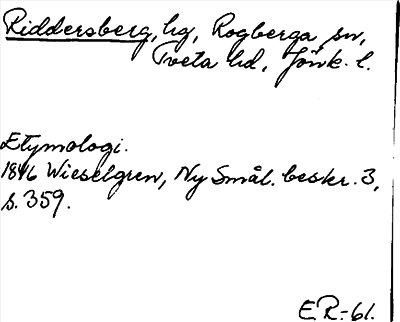 Riddersberg, hg, Rogberga sn,
Tveta hd, Jönk. l.
Etymologi.
1846 Wieselgren, Ny Smål. beskr. 3,
s. 359.
E R-61.